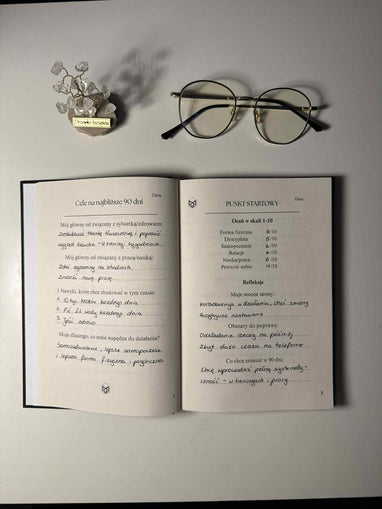 Data:
Cele na najbliższe 90 dni
Mój główny cel związany z sylwetką/zdrowiem:
Zredukować tkankę tłuszczową i poprawić
wygląd - 4 treningi tygodniowo.
Mój główny cel związany z pracą/nauką:
Zdać egzaminy na studiach.
Znaleźć nową pracę.
3 Nawyki, które chcę zbudować w tym czasie:
1. 10 tyś. kroków każdego dnia
2. Pić 2L wody każdego dnia
3. Jeść zdrowo
Moje dlaczego, co mnie napędza do działania?
Samozadowolenie, lepsze samopoczucie
i lepsza forma fizyczna i psychiczna
7
Data:
PUNKT STARTOWY
Oceń w skali 1-10
Forma fizyczna /10
Dyscyplina /10
Samopoczucie /10
Relacje /10
Nauka/praca /10
Pewność siebie /10
Refleksje
Moje mocne strony:
Konsekwencja w działaniu, chęć zmiany
Obszary do poprawy:
Odkładanie rzeczy na później
Zbyt dużo czasu na telefonie
Co chcę zmienić w 90 dni:
Chcę wprowadzić pełną systematy-
czność - w treningach i pracy.
8